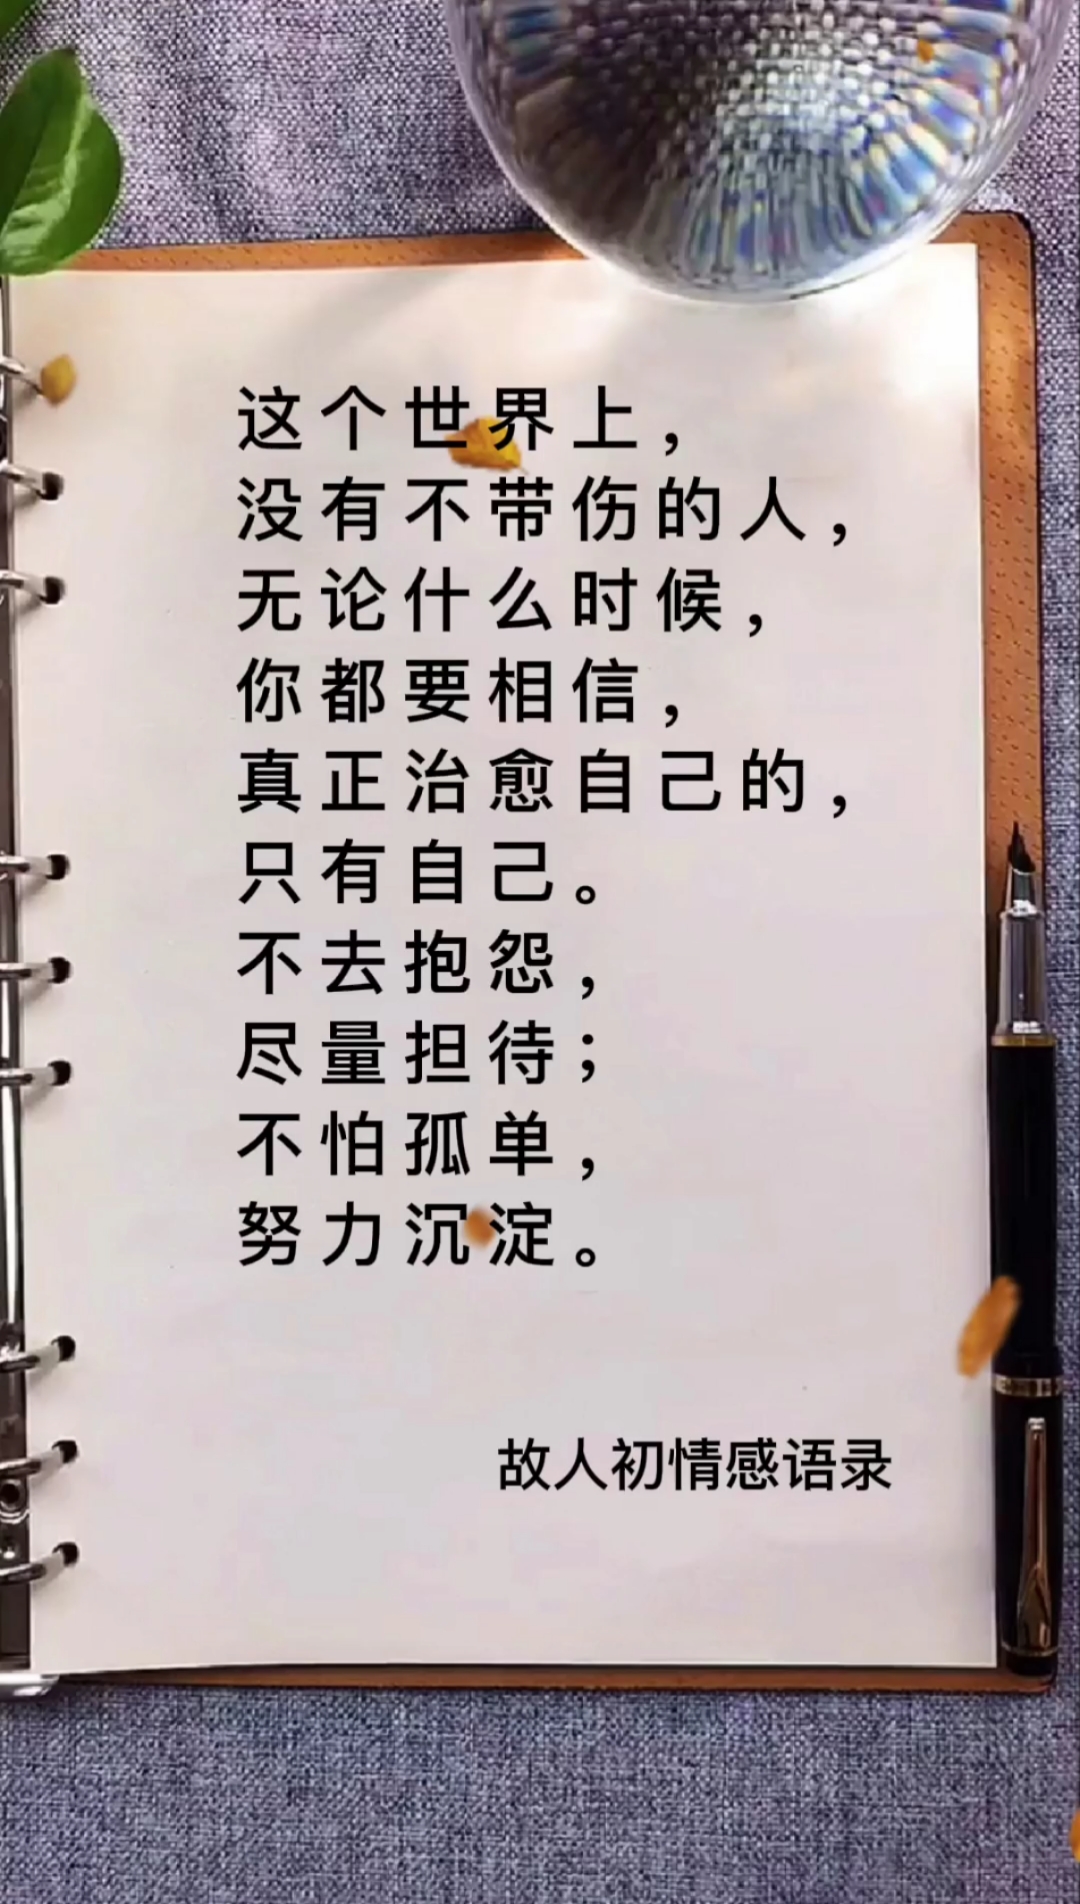 这个世界上，
没有不带伤的人，
无论什么时候，
你都要相信，
真正治愈自己的，
只有自己。
不去抱怨，
尽量担待；
不怕孤单，
努力沉淀。
故人初情感语录